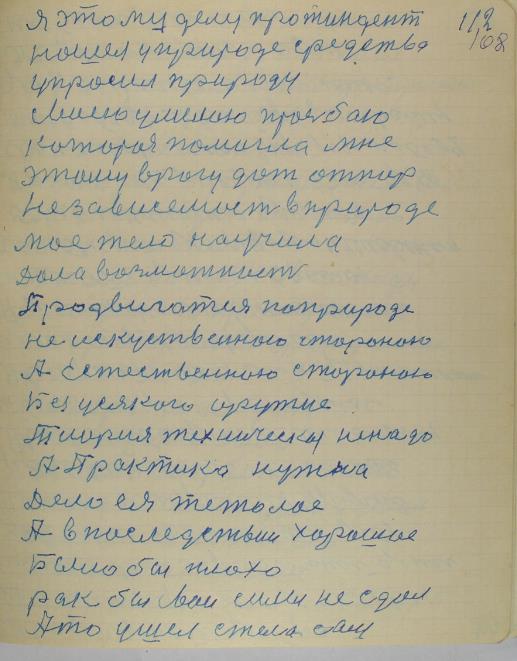 112
/108
Я этому делу протиндент
Ношел уприроде средства
упросил природу
Моею умелою прозбаю
которая помогла мне
Этому врогу дат отпор
Независемост в природе
мое тело научила
Дола возможност
Продвигатся поприроде
не искуственною стороною
А Естественною стороною
Без усякого оружие
Тиория техническа ненадо
А Практика нужна
Дело ея тежолае
А впоследствии харошае
Было бы плохо
рак бы свои сили не сдал
Ато ушел